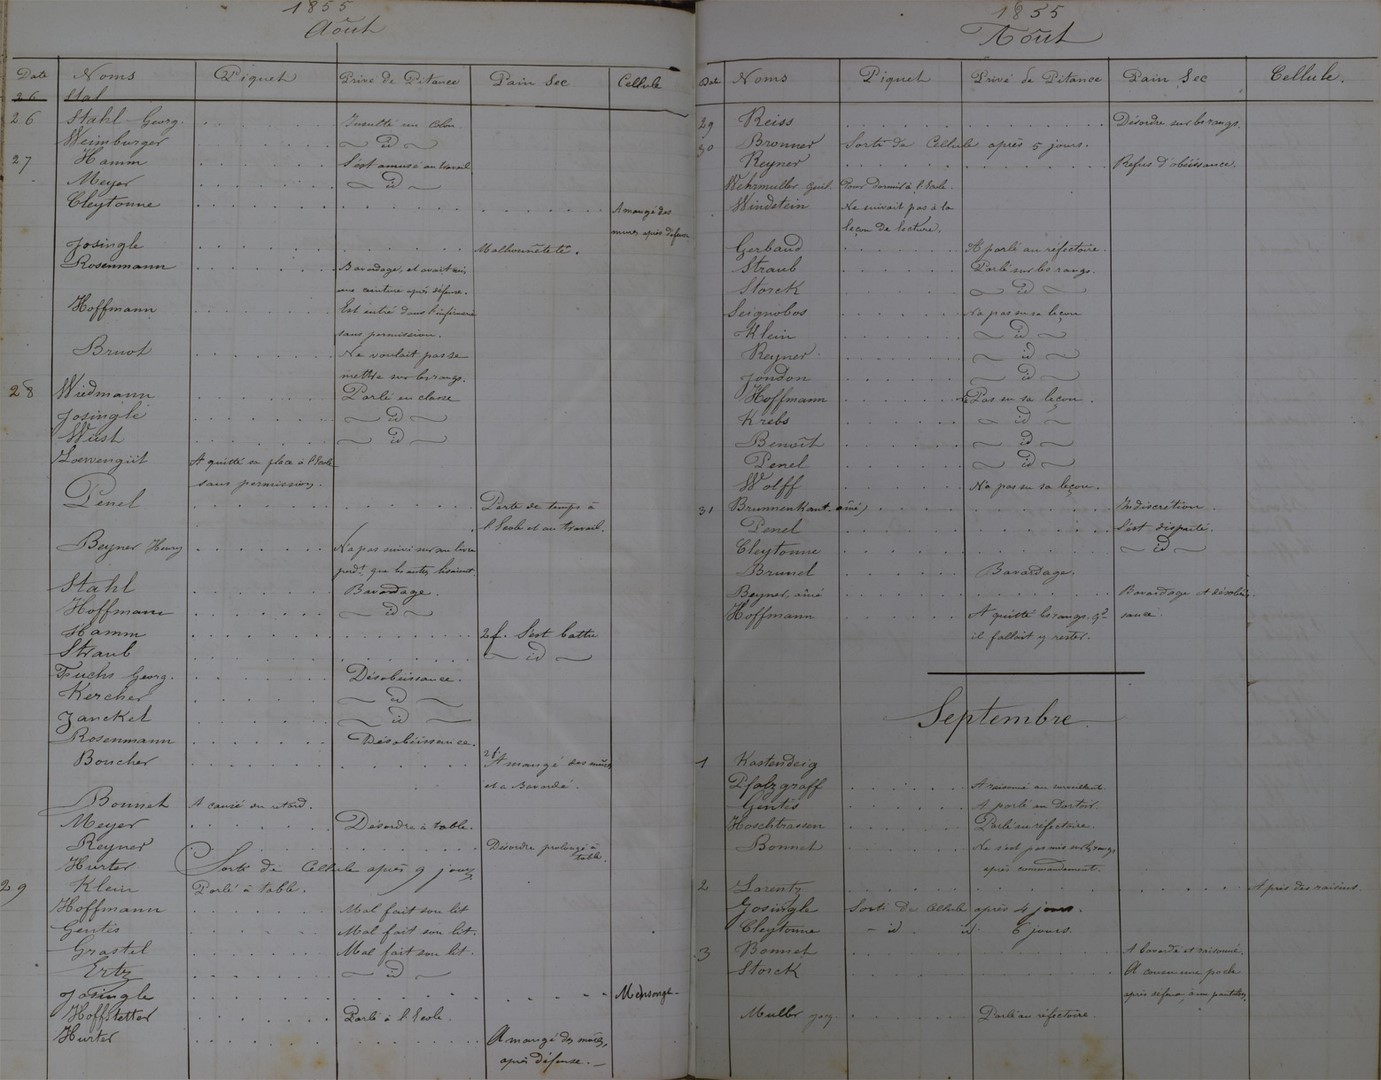 1855
Août
Date Noms Piquet Privé de Pitance Pain Sec Cellule
26 Stal
26 Stahl Georg. Insulté un colon
Weimburger id
27 Hamm S'est amusé au travail
Meyer id
Cleytonne A mangé des
mures après défense
Josingle Malhonnêteté.
Rosenmann Bavardage, et avait mis
une ceinture après défense.
Hoffmann Est entré dans l'infirmerie
sans permission.
Bruot Ne voulait pas se
mettre sur les rangs.
28 Wiedmann Parlé en classe
Josingle id
Wüst id
Loewengüt A quitté sa place à l'Ecole
sans permission.
Penel Perte de temps à
l'Ecole et au travail.
Beyner Henry N'a pas suivi sur son livre
pendt que les autres lisaient.
Stahl Bavardage.
Hoffmann id
Hamm 2f. S'est battu
Straub id
Fuchs Georg. Désobéissance.
Kercher id
Janckel id
Rosenmann Désobéissance.
Boucher 2f. A mangé des mûres
et a Bavardé.
Bonnet A causé du retard.
Meyer Désordre à table.
Reyner Désordre prolongé à
table.
Hurter Sorti de Cellule après 9 jours
29 Klein Parlé à table.
Hoffmann Mal fait son lit
Gentès Mal fait son lit.
Grastel Mal fait son lit.
Ertz id
Josingle Mensonge.
Hoffstetter Parlé à l'Ecole.
Hurter A mangé des mûres,
après défense.
1855
Août
Dat Noms Piquet Privé de Pitance Pain Sec Cellule.
29 Reiss Désordre sur les rangs.
30 Bronner Sorti de Cellule après 5 jours.
Reyner Refus d'obéissance.
Wehrmuller Guil. Pour dormir à l'Ecole.
Windstein Ne suivait pas à la
leçon de lecture.
Gerbaud A parlé au réfectoire.
Straub Parlé sur les rangs.
Storck id
Seignobos N'a pas su sa leçon
Klein id
Reyner id
Jondon id
Hoffmann Pas su sa leçon.
Krebs id
Benoît id
Penel id
Wolff N'a pas su sa leçon.
31 Brunnenkant. aîné Indiscrétion.
Penel S'est disputé.
Cleytonne id
Brunel Bavardage.
Beyner, aîné Bavardage et désobéis
Hoffmann A quitté les rangs, qd sance.
il fallait y rester.
Septembre.
1 Kastendeig
Pfalzgraff A raisonné au surveillant.
Gentès A parlé au Dortoir.
Hoschtrassen Parlé au réfectoire.
Bonnet Ne s'est pas mis sur les rangs
après commandement.
2 Lorentz A pris des raisins.
Josingle Sorti de Cellule après 4 jours.
Cleytonne id id 6 jours.
3 Bonnet A bavardé et raisonné.
Storck A une porte
après défense,
Muller Parlé au réfectoire.